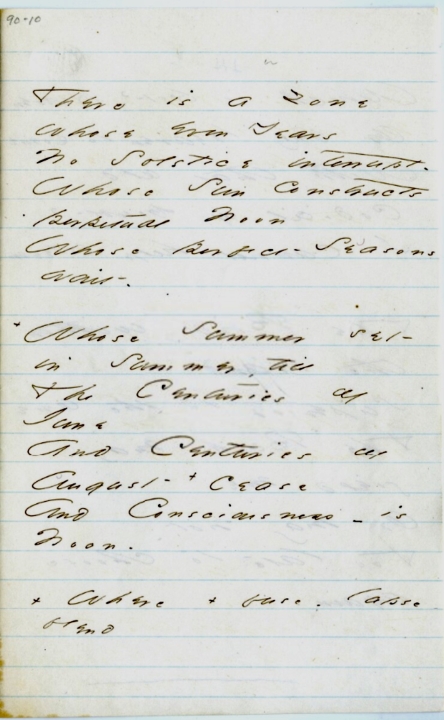 90-10
There is a Zone
whose even Years
No Solstice interrupt -
Whose Sun constructs
perpetual Noon
Whose perfect Seasons
wait -
+ Whose Summer set
in Summer, till
The Centuries of
June
And Centuries of
August + cease
And Consciousness - is
Noon.
+ Where + fuse - lapse -
blend